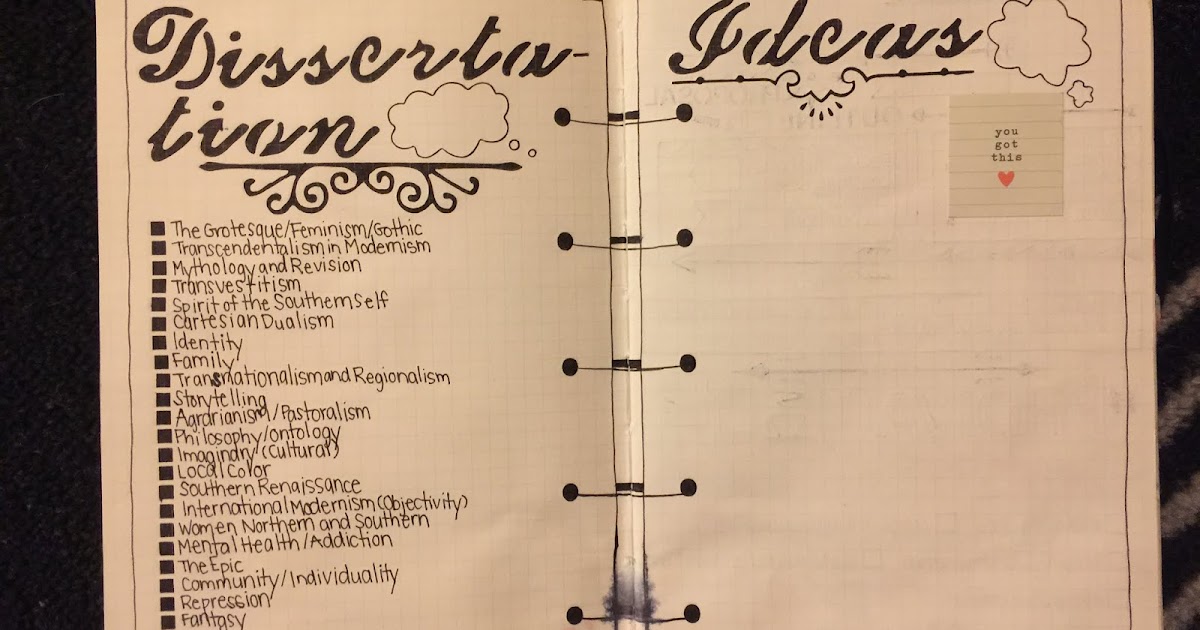 Disserta-
tion
The Grotesque/Feminism/Gothic
Transcendentalism in Modernism
Mythology and Revision
Transvestitism
Spirit of the Southern Self
Cartesian Dualism
Identity
Family
Transnationalism and Regionalism
Storytelling
Agrarianism/Pastoralism
Philosophy/ontology
Imaginary (Cultural)
Local Color
Southern Renaissance
International Modernism (Objectivity)
Women Northern and Southern
Mental Health/Addiction
The Epic
Community/Individuality
Repression
Fantasy
Ideas
you
got
this